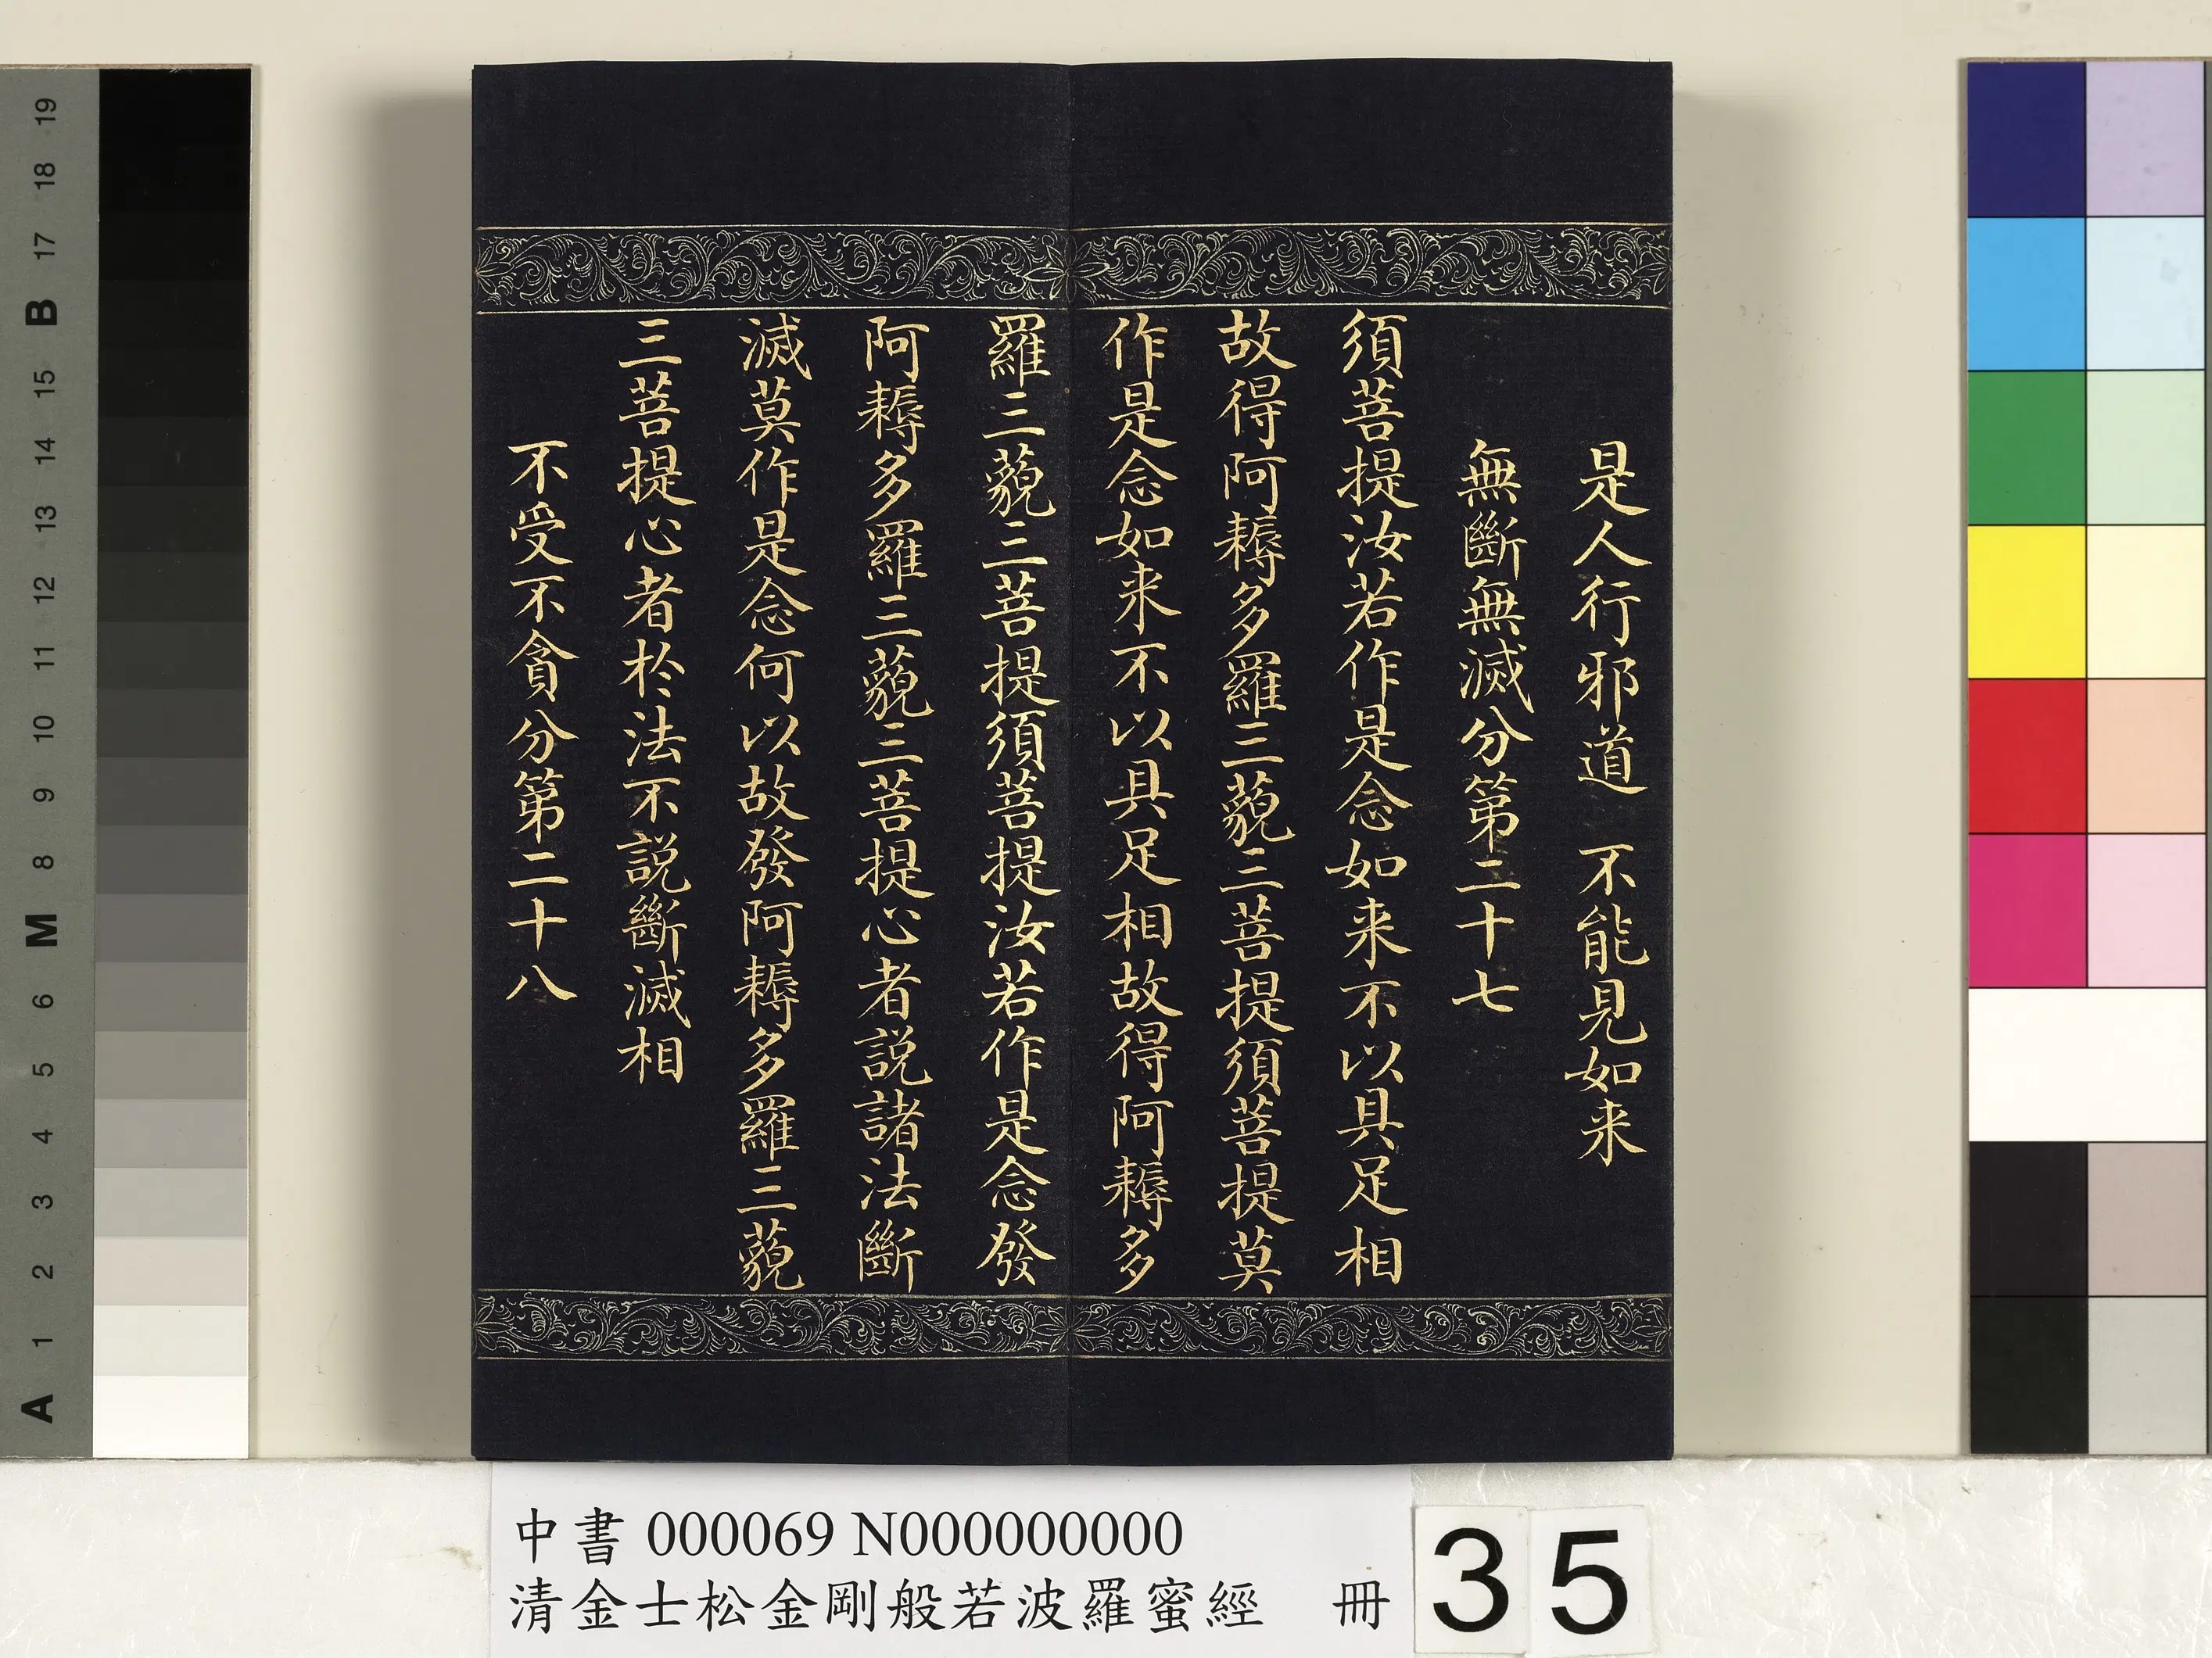 是人行邪道　不能見如来
無斷無滅分第二十七
須菩提汝若作是念如来不以具足相
故得阿耨多羅三藐三菩提須菩提莫
作是念如来不以具足相故得阿耨多
羅三藐三菩提須菩提汝若作是念發
阿耨多羅三藐三菩提心者説諸法斷
滅莫作是念何以故發阿耨多羅三藐
三菩提心者於法不説斷滅相
不受不貪分第二十八
中書 000069 N000000000
清金士松金剛般若波羅蜜經　冊
35
19
18
17
B
15
14
13
12
11
10
9
8
M
6
5
4
3
2
1
A